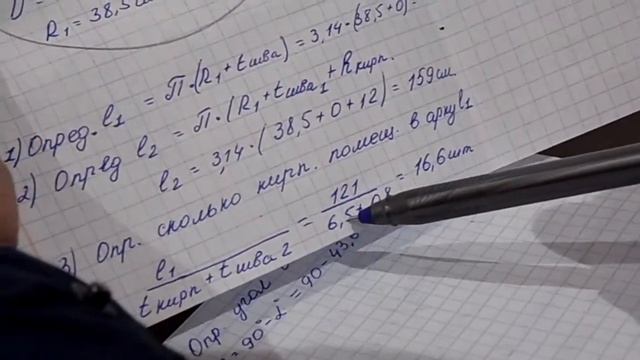 R₁ = 38,5
1) Опред. l₁ = П·(R₁ + t шва) = 3,14·(38,5+0)
2) Опред l₂ = П·(R₁ + t шва₁ + h кирп.
l₂ = 3,14·(38,5+0+12) = 159см
3) Опр. сколько кирп. помещ. в арку l₁
l₁ / t кирп + t шва 2 = 121 / 6,5+0,8 = 16,6шт
Опр. угол
= 90° - 2 = 90 - 43,